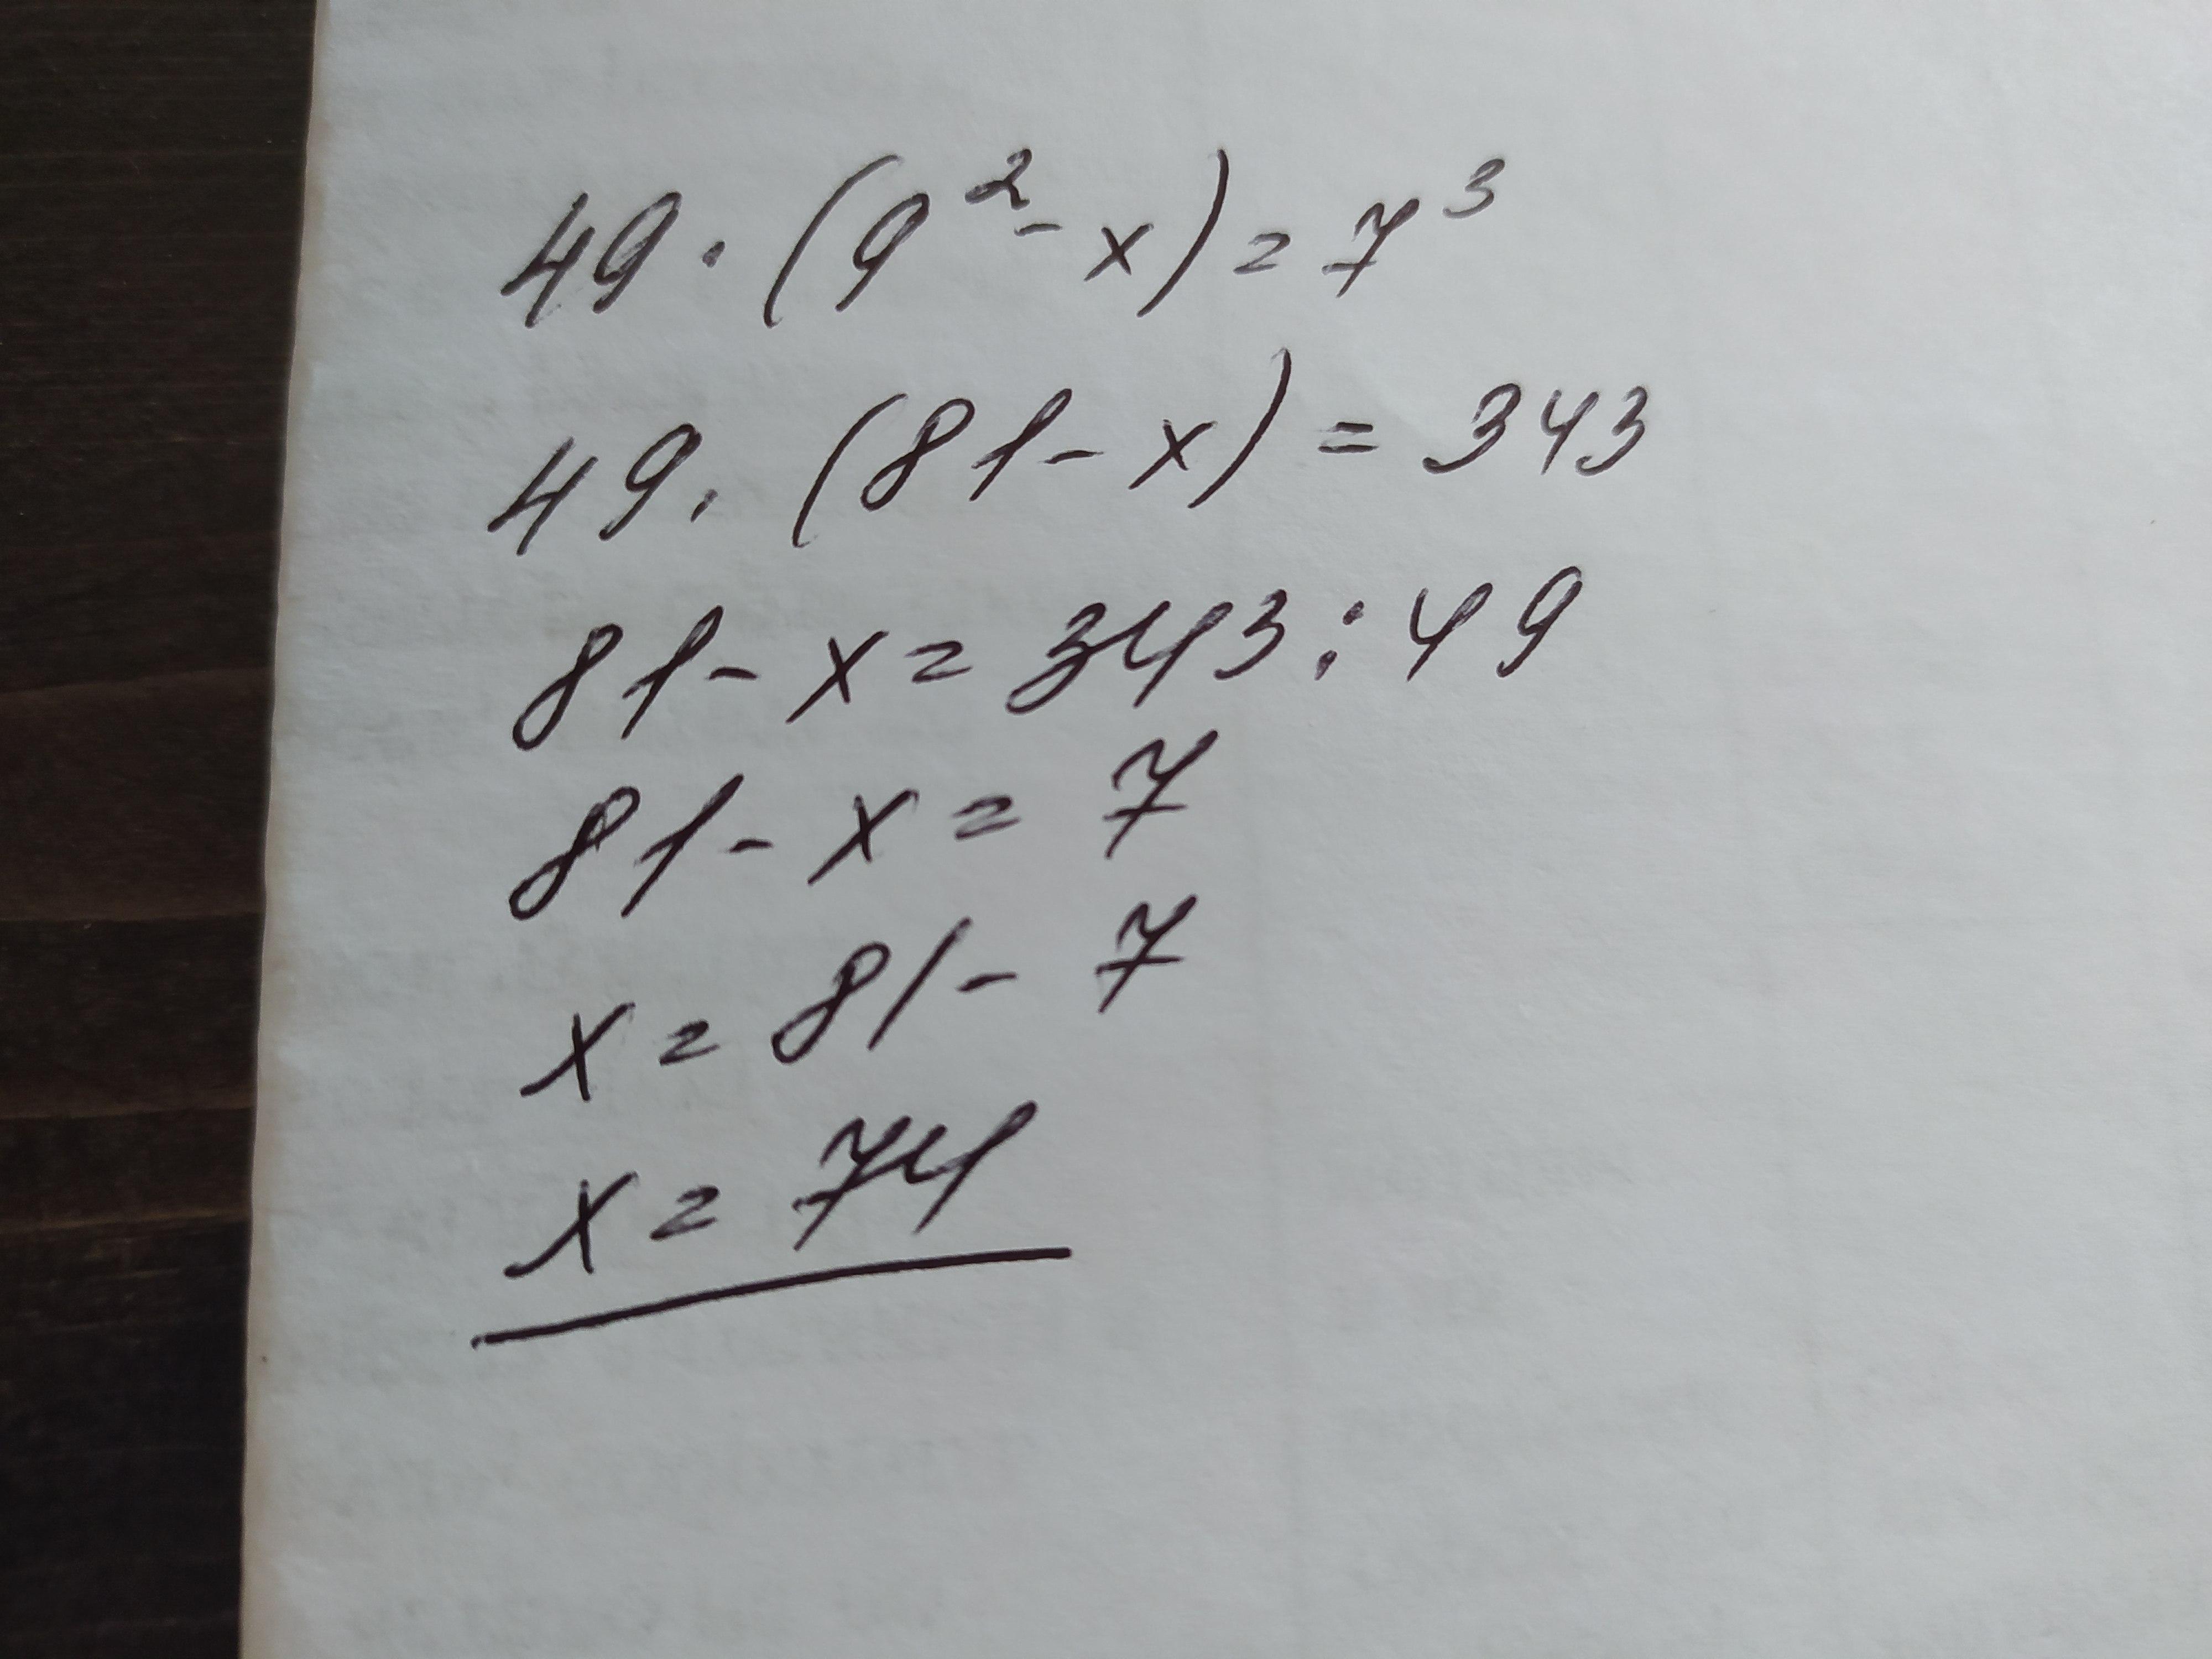 49 · (9² - x) = 7³
49 · (81 - x) = 343
81 - x = 343 : 49
81 - x = 7
x = 81 - 7
x = 74